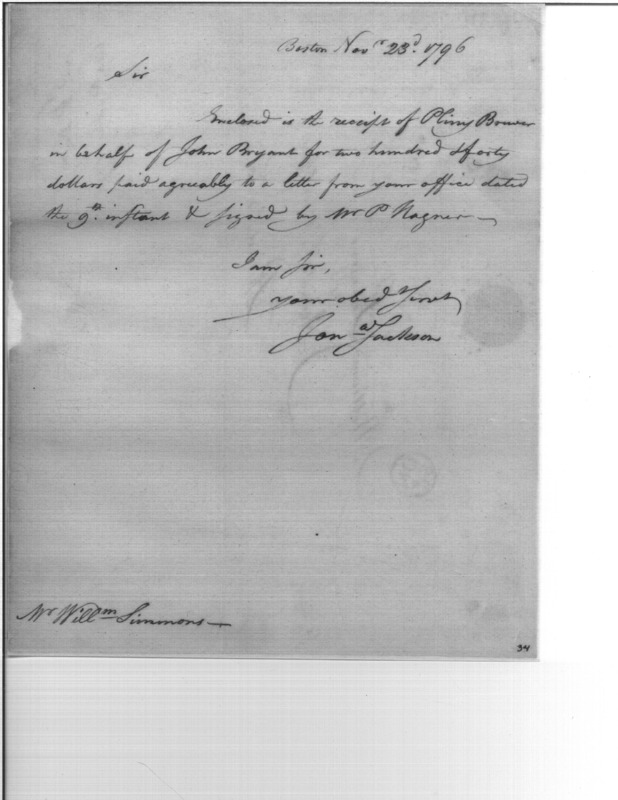 Boston Nov.r 23.d 1796
Sir
Enclosed is the receipt of Pliny Brewer
in behalf of John Bryant for two hundred & forty
dollars paid agreeably to a letter from your office dated
the 9.th instant & signed by Mr P Hagner —
I am Sir,
your obed Servt
Jon.a Jackson
Mr Will.m Simmons —
34